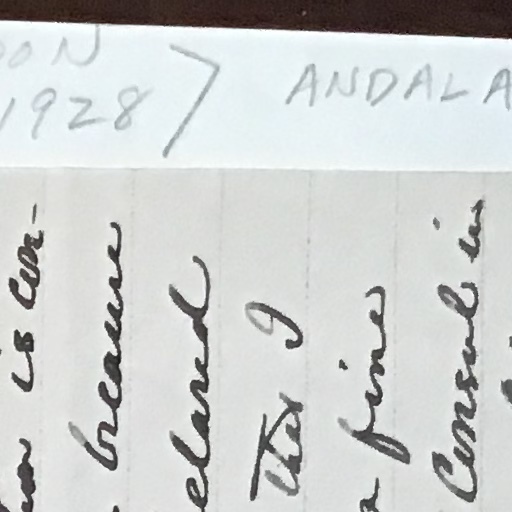 is con-
because
clared
that I
a fine
Consul in
1928
ANDALA